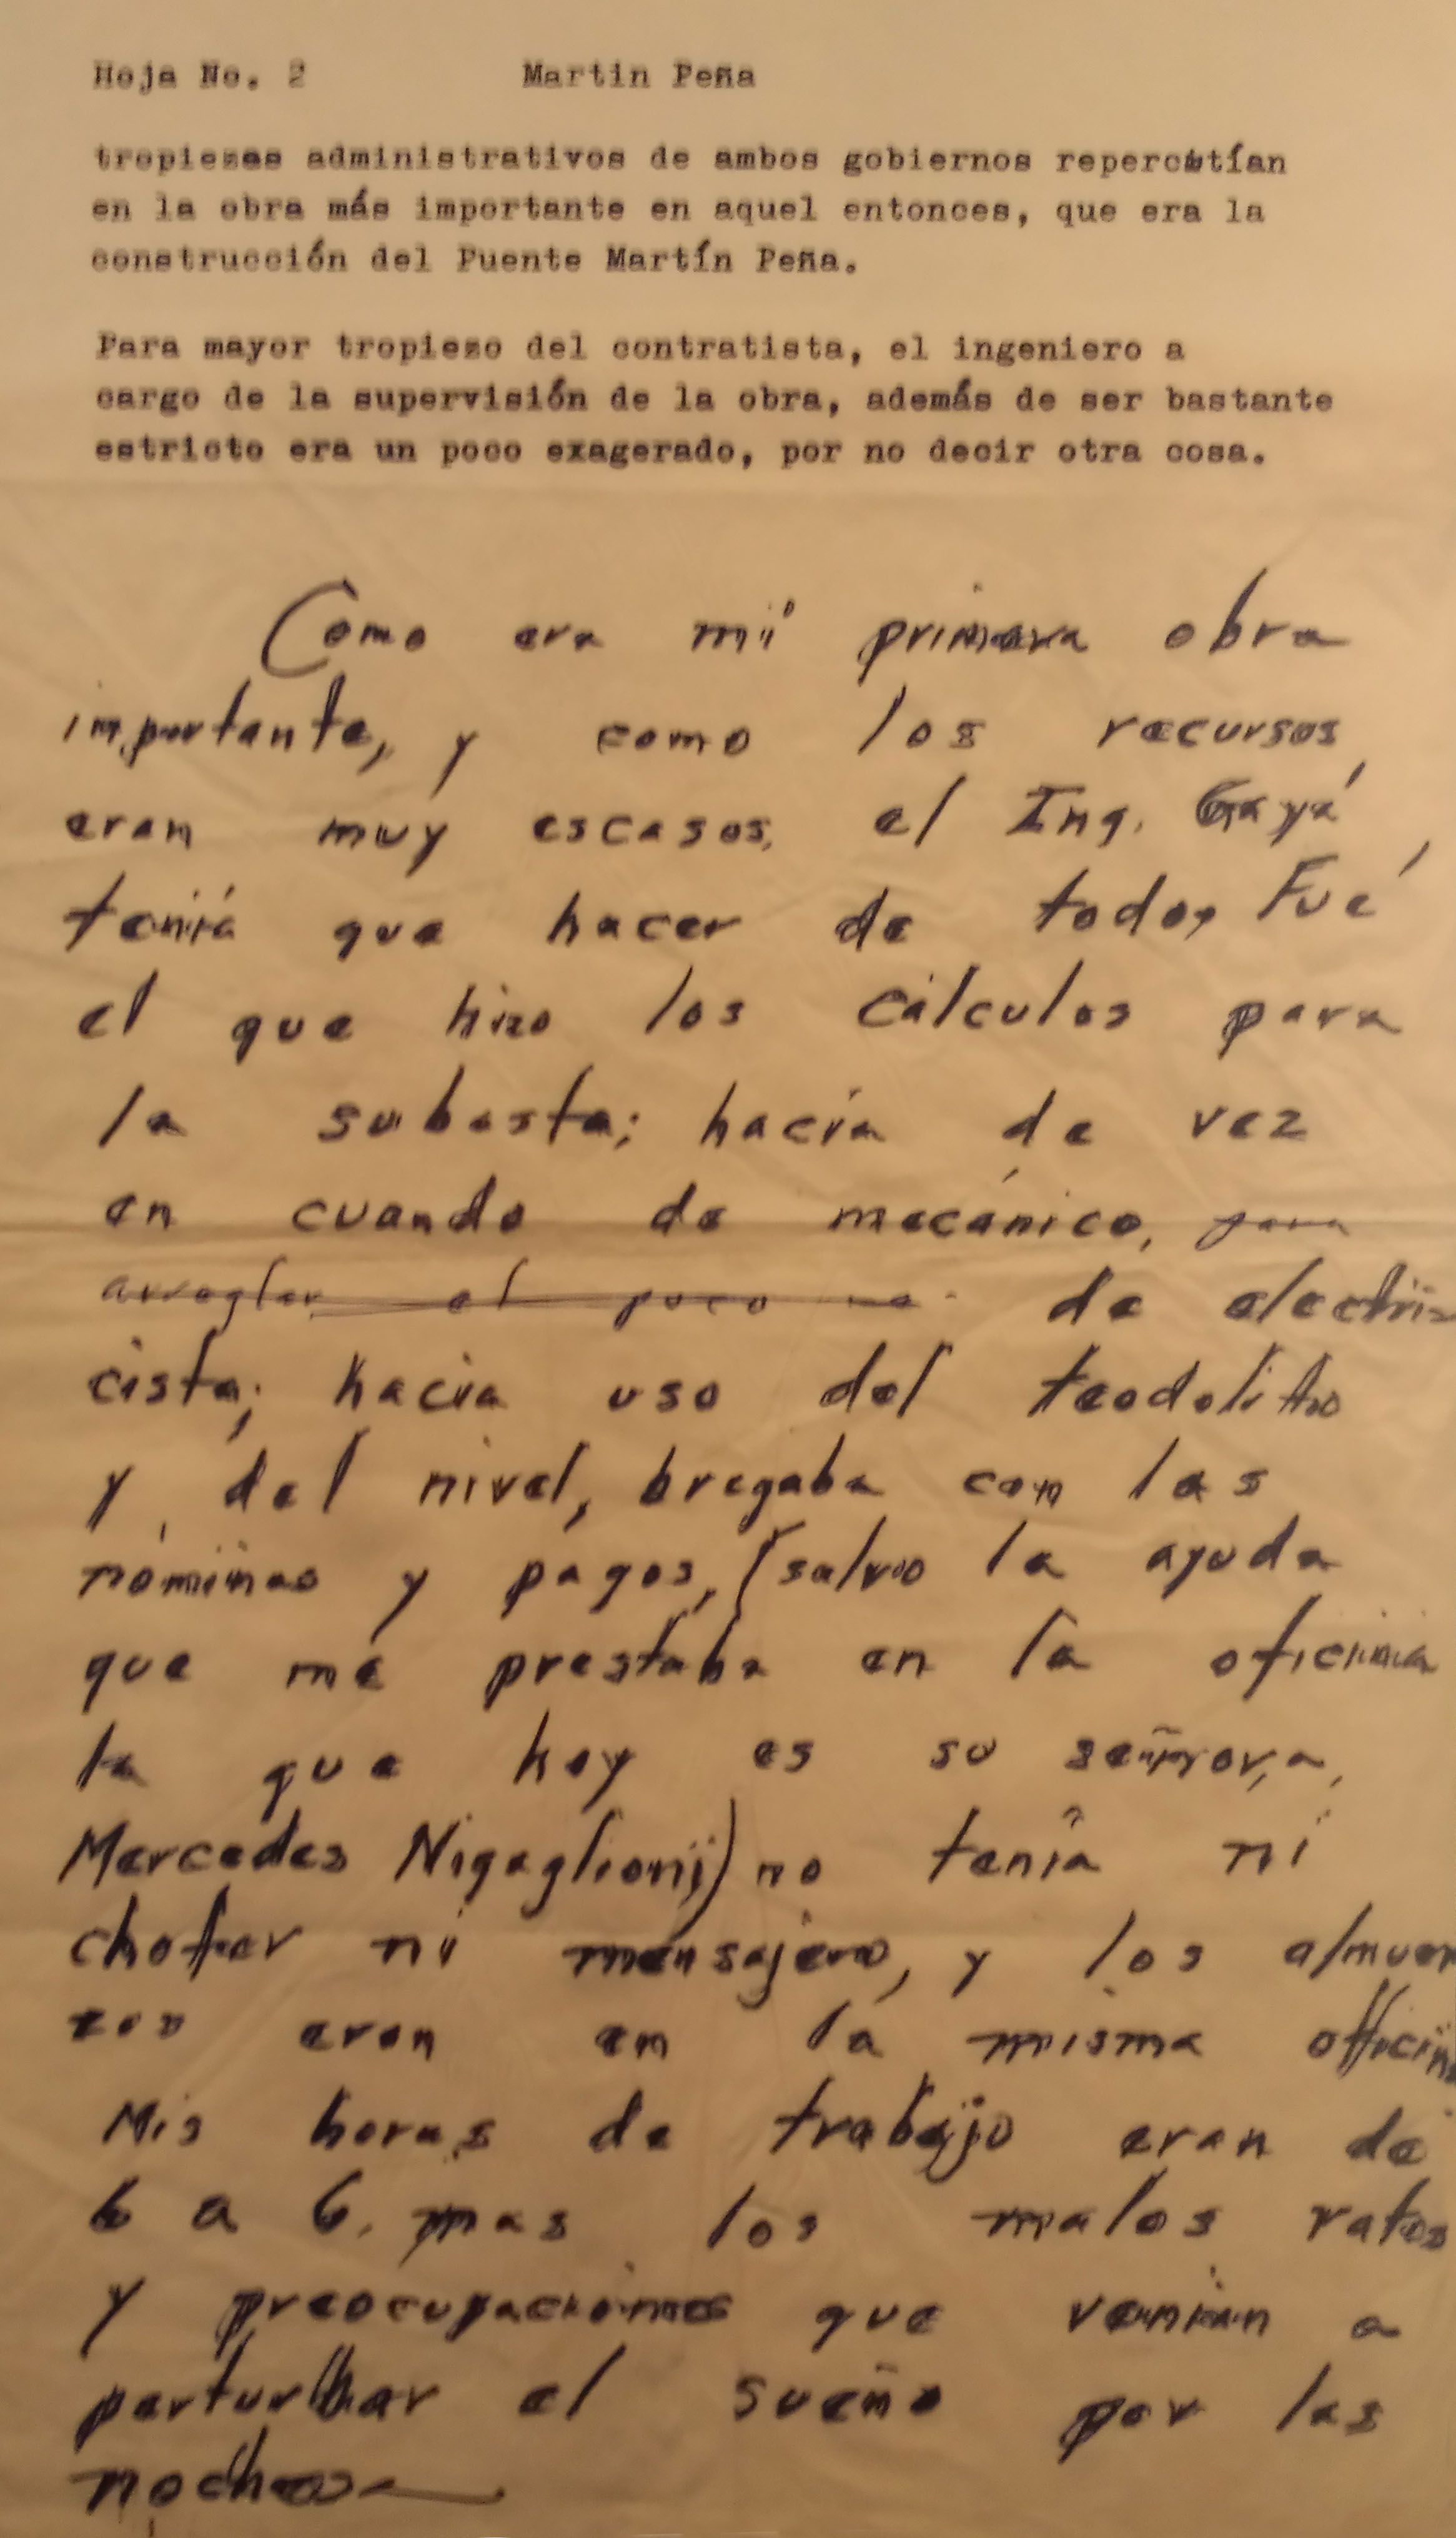 Hoja No. 2 Martin Peña
tropiezos administrativos de ambos gobiernos repercutían
en la obra más importante en aquel entonces, que era la
construcción del Puente Martín Peña.
Para mayor tropiezo del contratista, el ingeniero a
cargo de la supervisión de la obra, además de ser bastante
estricto era un poco exagerado, por no decir otra cosa.
Como era mi primera obra
importante, y como los recursos
eran muy escasos, el Ing. Gayá
tenía que hacer de todo, Fué
el que hizo los cálculos para
la subasta; hacía de vez
en cuando de mecánico, para
arreglar el poco de electri-
cista; hacia uso del teodolito
y del nivel, bregaba con las
nóminas y pagos, (salvo la ayuda
que me prestaba en la oficina
la que hoy es su señora,
Mercedes Nigaglioni) no tenía ni
chofer ni mensajero, y los almuer
zos eran en la misma oficina
Mis horas de trabajo eran de
6 a 6, mas los malos ratos
y preocupaciones que venian a
perturbar el sueño por las
noches